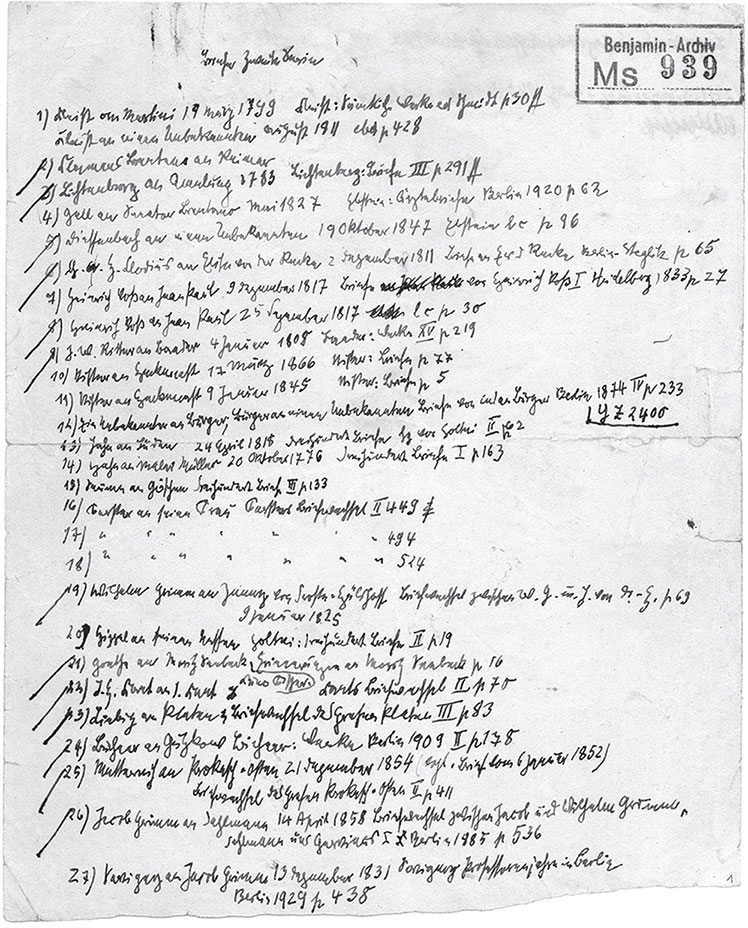 Benjamin-Archiv
Ms 939
Briefe Zweite Serie
1) Kleist an Martini 19 März 1799 Kleist: Sämtliche Werke ed Schmidt p 30 ff
Kleist an einen Unbekannten August 1811 ebd p 428
2) Clemens Brentano an Reimer
3) Lichtenberg an Amelung 1783 Lichtenberg: Briefe III p 291 ff
4) Gall an Senator Brentano Mai 1827 Ebstein: Ärztebriefe Berlin 1920 p 62
5) Dieffenbach an einen Unbekannten 19 Oktober 1847 Ebstein l c p 96
6) Ch. A. H. Clodius an Elisa von der Recke 2 Dezember 1811 Briefe an E v d Recke Berlin-Steglitz p 65
7) Heinrich Voß an Jean Paul 9 Dezember 1817 Briefe von Heinrich Voß I Heidelberg 1833 p 27
8) Heinrich Voß an Jean Paul 25 Dezember 1817 l c p 30
9) J. W. Ritter an Baader 4 Januar 1808 Baader: Werke XV p 219
10) Vischer an 17 März 1866 Vischer: Briefe p 77
11) Vischer an 9 Januar 1845 Vischer: Briefe p 5
12) Ein Unbekannter an Bürger, Bürger an einen Unbekannten Briefe von und an Bürger Berlin 1874 IV p 233
L Y Z 2400
13) Jahn an 24 April 1818 Dreihundert Briefe hg von Holtei II p 62
14) Hahn an Maler Müller 20 Oktober 1776 Dreihundert Briefe I p 163
15) Seume an Göschen Dreihundert Briefe III p 133
16) Forster an seine Frau Forsters Briefwechsel II 449 f
17) " " " " " " " 494
18) " " " " " " " 524
19) Wilhelm Grimm an Jenny von Droste-Hülshoff Briefwechsel zwischen W. G. u. J. von D.-H. p 69
9 Januar 1825
20) Hippel an seinen Neffen Holtei: Dreihundert Briefe II p 19
21) Goethe an Moritz Seebeck, Erinnerungen an Moritz Seebeck p 16
Kuno Fischer:
22) J. H. Kant an I. Kant Kants Briefwechsel II p 70
23) Liebig an Platen Briefwechsel des Grafen Platen III p 83
24) Büchner an Gutzkow Büchner: Werke Berlin 1909 II p 178
25) Metternich an Prokesch-Osten 21 Dezember 1854 (vgl. Brief vom 6 Januar 1852)
Briefwechsel des Grafen Prokesch-Osten II p 411
26) Jacob Grimm an Dahlmann 14 April 1858 Briefwechsel zwischen Jacob und Wilhelm Grimm,
Dahlmann und Gervinus I Berlin 1885 p 536
27) Savigny an Jacob Grimm 13 Dezember 1831 Savignys Professorenjahre in Berlin
Berlin 1929 p 438
1